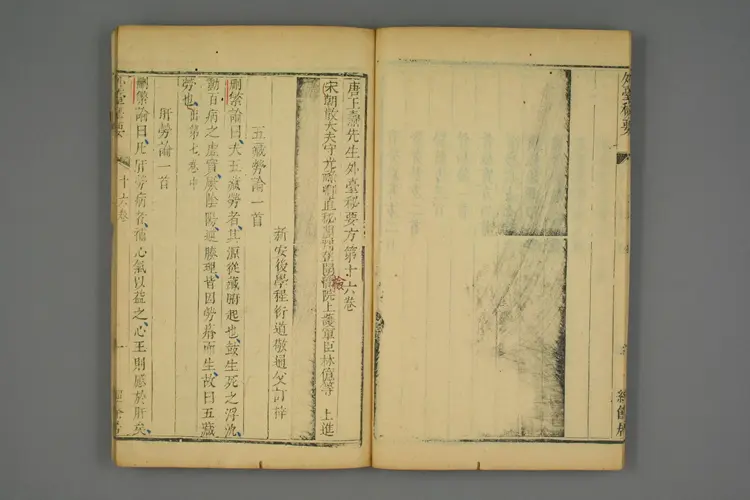 唐王燾先生外臺秘要方第十六卷
宋朝散大夫守光祿卿直秘閣判登聞檢院上護軍臣林億等 上進
新安後學程衍道敬通父訂梓
五藏勞論一首
刪繁論曰夫五藏勞者其源從藏腑起也鼓生死之浮沈
動百病之虛實厥陰陽逆腠理皆因勞瘠而生故曰五藏
勞也出第七卷中
肝勞論一首
刪繁論曰凡肝勞病者補心氣以益之心王則感於肝矣
外臺秘要
十六卷
一
外臺秘要
經餘居